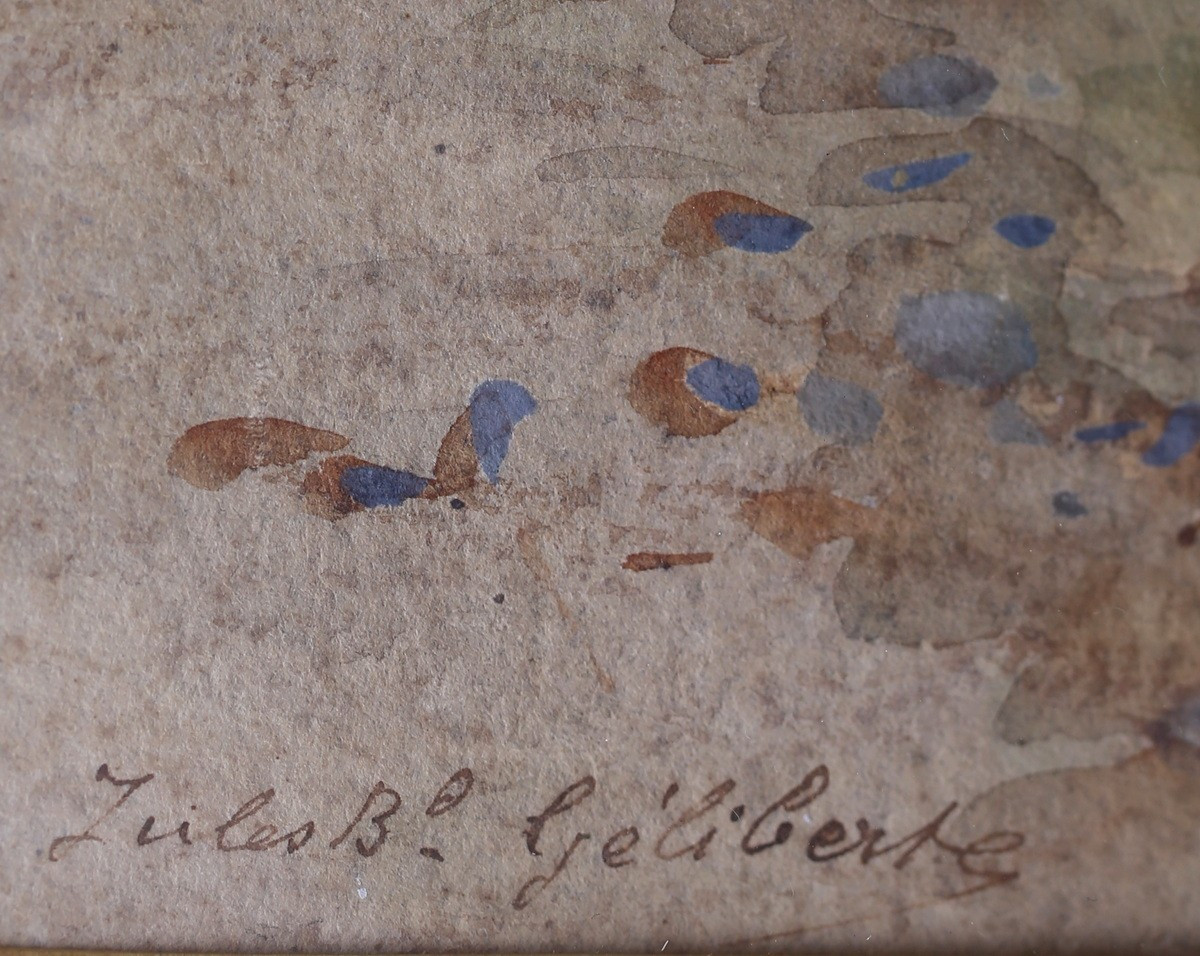 Jules Bd. Gélibert